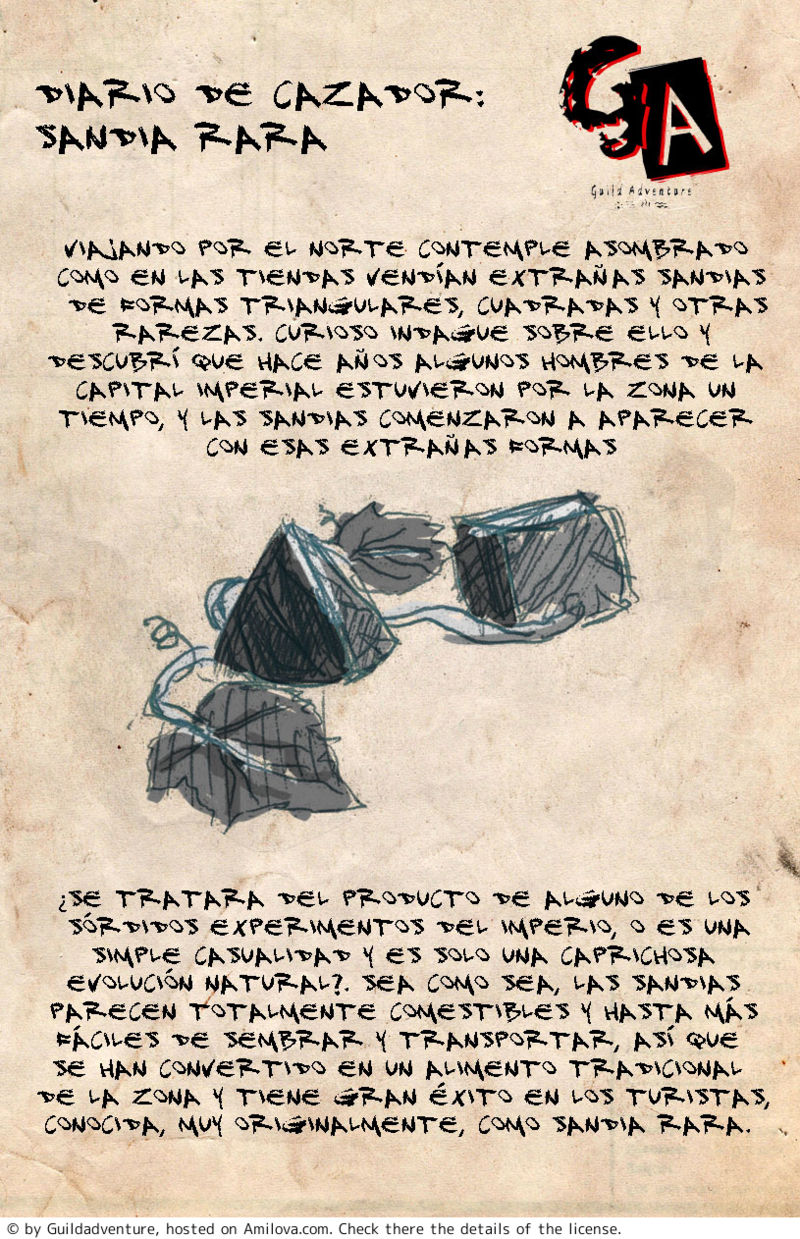 DIARIO DE CAZADOR:
SANDIA RARA
GA
Guild Adventure
VIAJANDO POR EL NORTE CONTEMPLE ASOMBRADO
COMO EN LAS TIENDAS VENDÍAN EXTRAÑAS SANDIAS
DE FORMAS TRIANGULARES, CUADRADAS Y OTRAS
RAREZAS. CURIOSO INDAGUE SOBRE ELLO Y
DESCUBRÍ QUE HACE AÑOS ALGUNOS HOMBRES DE LA
CAPITAL IMPERIAL ESTUVIERON POR LA ZONA UN
TIEMPO, Y LAS SANDIAS COMENZARON A APARECER
CON ESAS EXTRAÑAS FORMAS
¿SE TRATARA DEL PRODUCTO DE ALGUNO DE LOS
SÓRDIDOS EXPERIMENTOS DEL IMPERIO, O ES UNA
SIMPLE CASUALIDAD Y ES SOLO UNA CAPRICHOSA
EVOLUCIÓN NATURAL?. SEA COMO SEA, LAS SANDIAS
PARECEN TOTALMENTE COMESTIBLES Y HASTA MÁS
FÁCILES DE SEMBRAR Y TRANSPORTAR, ASÍ QUE
SE HAN CONVERTIDO EN UN ALIMENTO TRADICIONAL
DE LA ZONA Y TIENE GRAN ÉXITO EN LOS TURISTAS,
CONOCIDA, MUY ORIGINALMENTE, COMO SANDIA RARA.
© by Guildadventure, hosted on Amilova.com. Check there the details of the license.